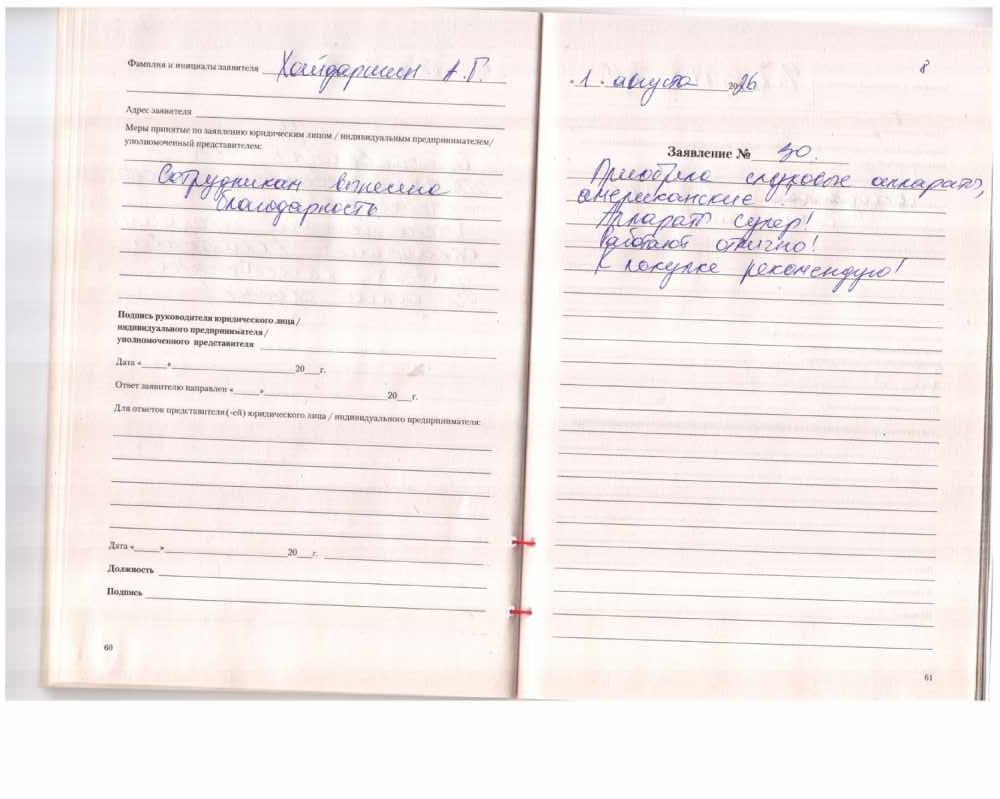 Фамилия и инициалы заявителя Хайдаршин А.Г.
Адрес заявителя
Меры принятые по заявлению юридическим лицом / индивидуальным предпринимателем/
уполномоченный представителем:
Сотрудникам вынесено
благодарность
Подпись руководителя юридического лица/
индивидуального предпринимателя/
уполномоченного представителя
Дата «____»____20___г.
Ответ заявителю направлен «____»____20___г.
Для отметок представителя (-ей) юридического лица / индивидуального предпринимателя:
Дата «____»____20___г.
Должность
Подпись
60
8
"1" августа 2026г.
Заявление № 30.
Приобрела слуховые аппараты,
американские!
Аппараты супер!
Работают отлично!
К покупке рекомендую!
61